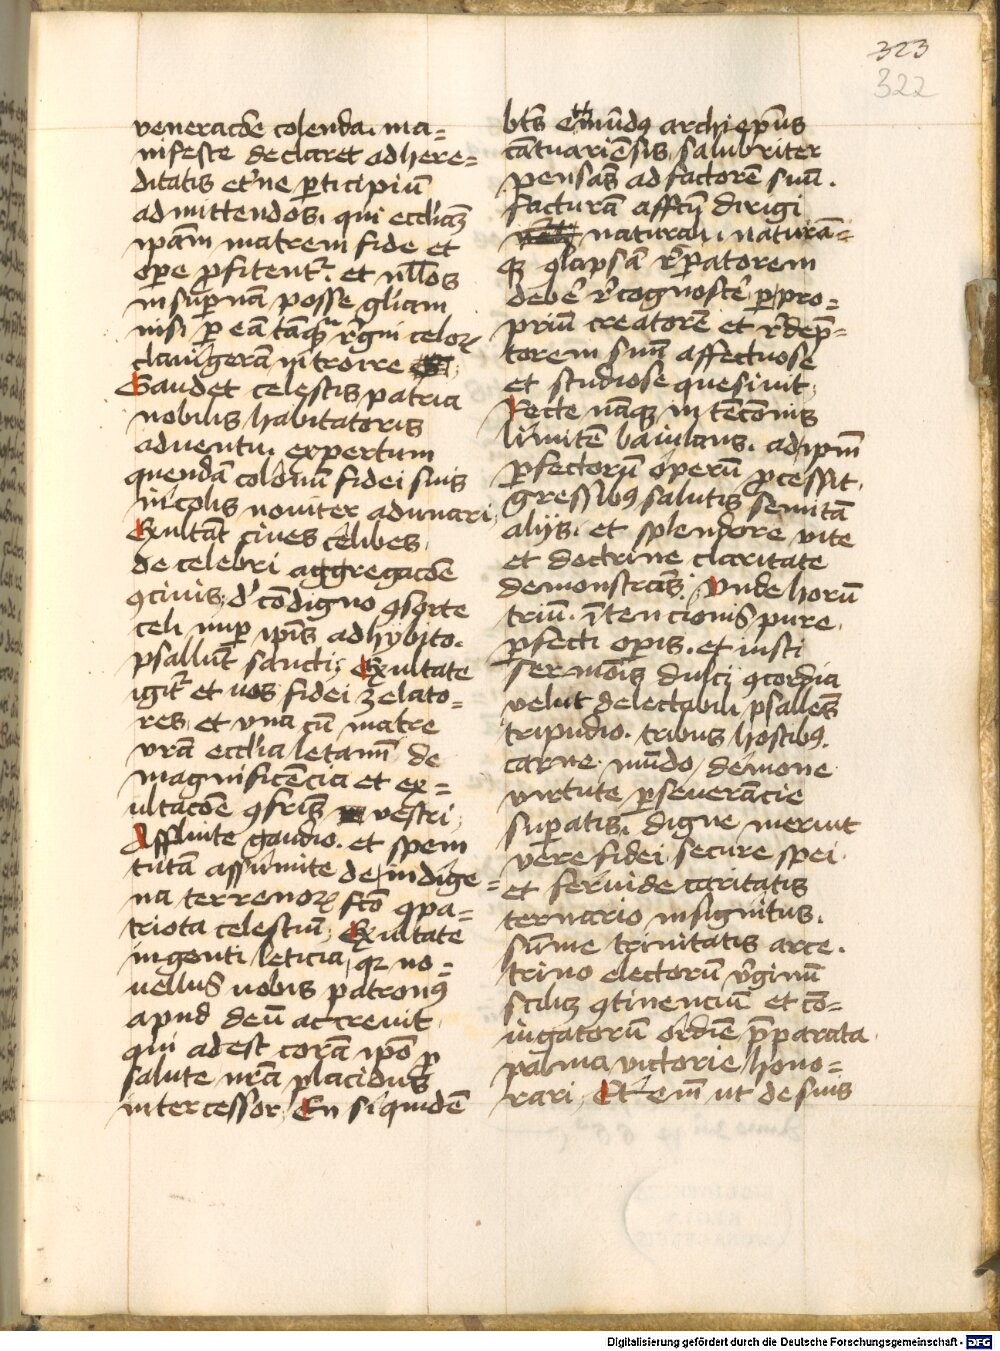 323
322
veneracōe colenda. ma=
nifeste declaret ad here=
ditatis et'ne p̱ticipiū
admittendos. qui eccl̄iaꝫ
ip̄am matrem fide et
ope ꝓfitent᷑. et nłłos
in sup̱nā posse gl̓iam
nisi p̱ eā tāꝙᷓ r̓gni celoꝝ
clauigerā introire
Gaudet celestis patria
nobilis habitatoris
aduentu. expertum
quendā colonū fidei suis
incolis nouiter adunari
Exultāt ciues celibes
de celebri aggregacōe
ꝯciuis, d' cōdigno ꝯsorte
celi nup̱ ip̄is adhybito.
psallūt sancti; Exultate
igit᷑ et uos fidei zelato=
res, et vna cū matre
vr̄a eccl̄ia letam̄ de
magnificēcia et ex=
ultacōe ꝯfr̄is vestri,
Affluite gaudio. et spem
tutā assumite de indige=
na terrenoꝝ fc̄o ꝯpa=
triota celestiū; Exultate
ingenti leticia, qꝛ no=
uellus uobis patronꝰ
apud deū accreuit
qui adest corā ip̄o ꝓ
salute nr̄a placidus
intercessor, En siquidē
bt̄s emūdꝰ archiep̄us
cātuariēsis salubriter
pensās ad factorē suū.
facturā affc̄ū dirigi
naturali, naturā=
qꝫ ꝯlapsā r̓p̱atorem
debē r̓cognoscē, p̱ pro=
priū creatorē et r̓dēp=
torem suū affectuose
et studiose quesiuit,
Recte nāqꝫ intēcōnis
limitē baiulans. ad ip̄m
p̱fectorū operū ꝓcessit.
gressibꝰ salutis semitā
alijs. et splendore vite
et doctrine claritate
demonstrās; Vnde horū
triū. ītencionis pure,
p̱fecti opis. et iusti
sermōis dulci ꝯcordia
velut delectabili psallēs
tripudio. tribus hostibꝰ
carne. mūdo, demone
virtute p̱seuerācie
sup̱atis. digne meruit
vere fidei secure spei.
et feruide caritatis
ternario insignitus.
sūme trinitatis arce.
trino electorū v̓ginū
scilicꝫ ꝯtinenciū et cō=
iugatorū ordīe p̄parata
palma victorie hono=
rari, Et em̄ ut de suis
Digitalisierung gefördert durch die Deutsche Forschungsgemeinschaft - DFG